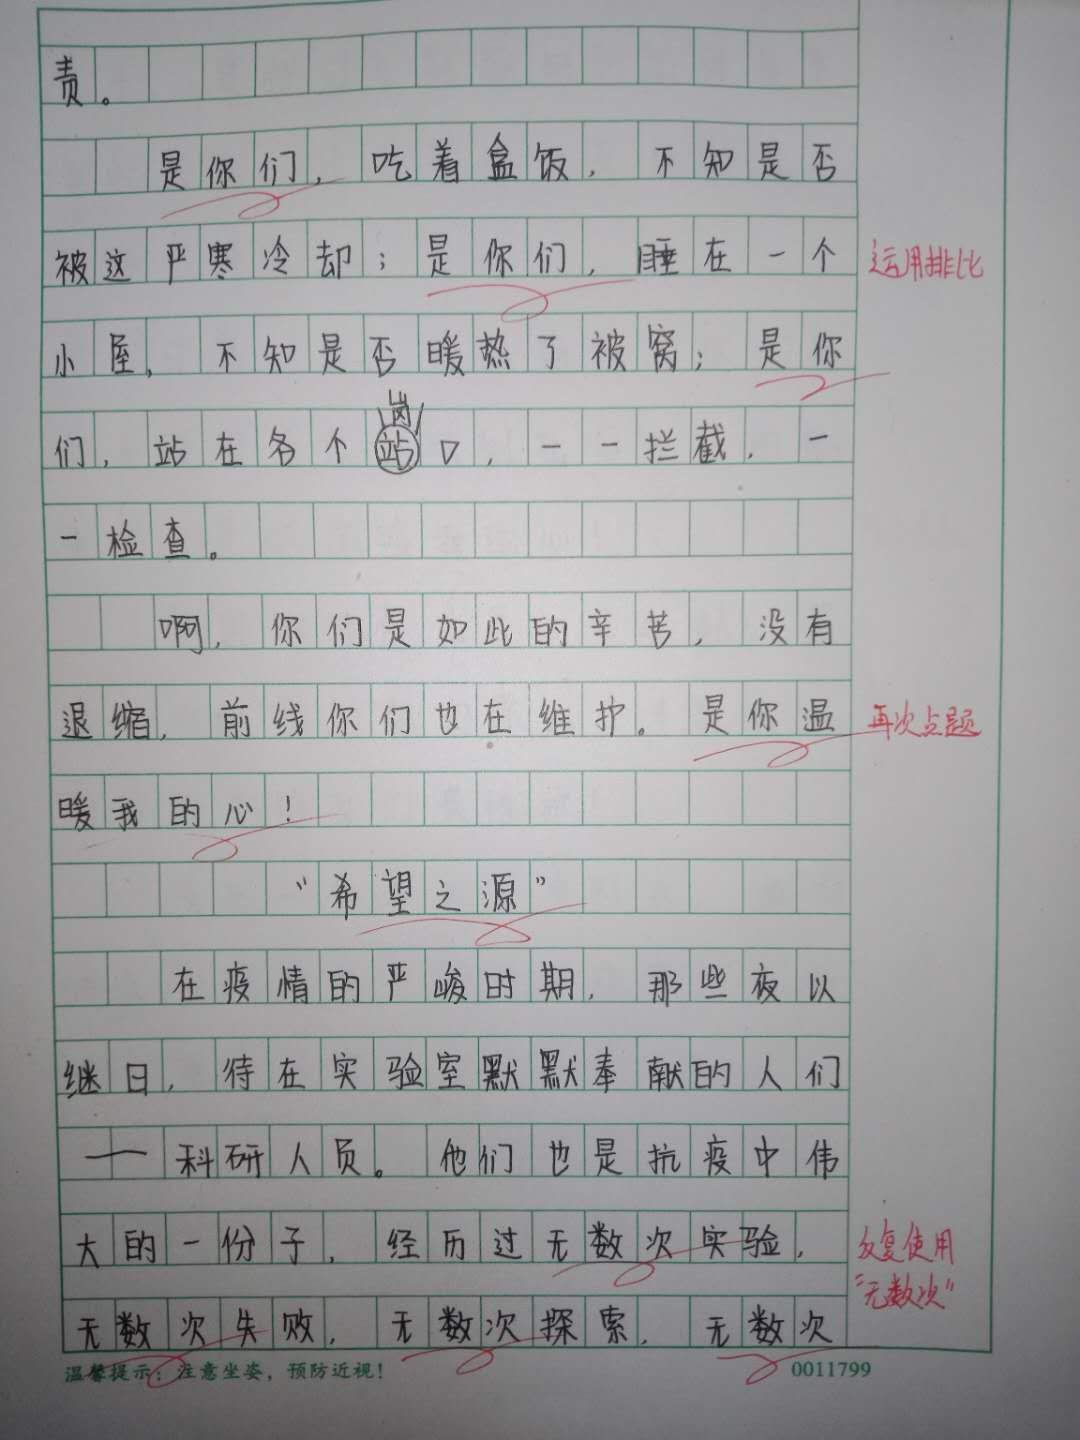 责。
是你们，吃着盒饭，不知是否
被这严寒冷却；是你们，睡在一个
运用排比
小屋，不知是否暖热了被窝；是你
岗
们，站在各个站口，一一拦截，一
一检查。
啊，你们是如此的辛苦，没有
退缩，前线你们也在维护。是你温
再次点题
暖我的心！
“希望之源”
在疫情的严峻时期，那些夜以
继日，待在实验室默默奉献的人们
——科研人员。他们也是抗疫中伟
大的一份子，经历过无数次实验，
反复使用
“无数次”
无数次失败，无数次探索，无数次
温馨提示：注意坐姿，预防近视！
0011799